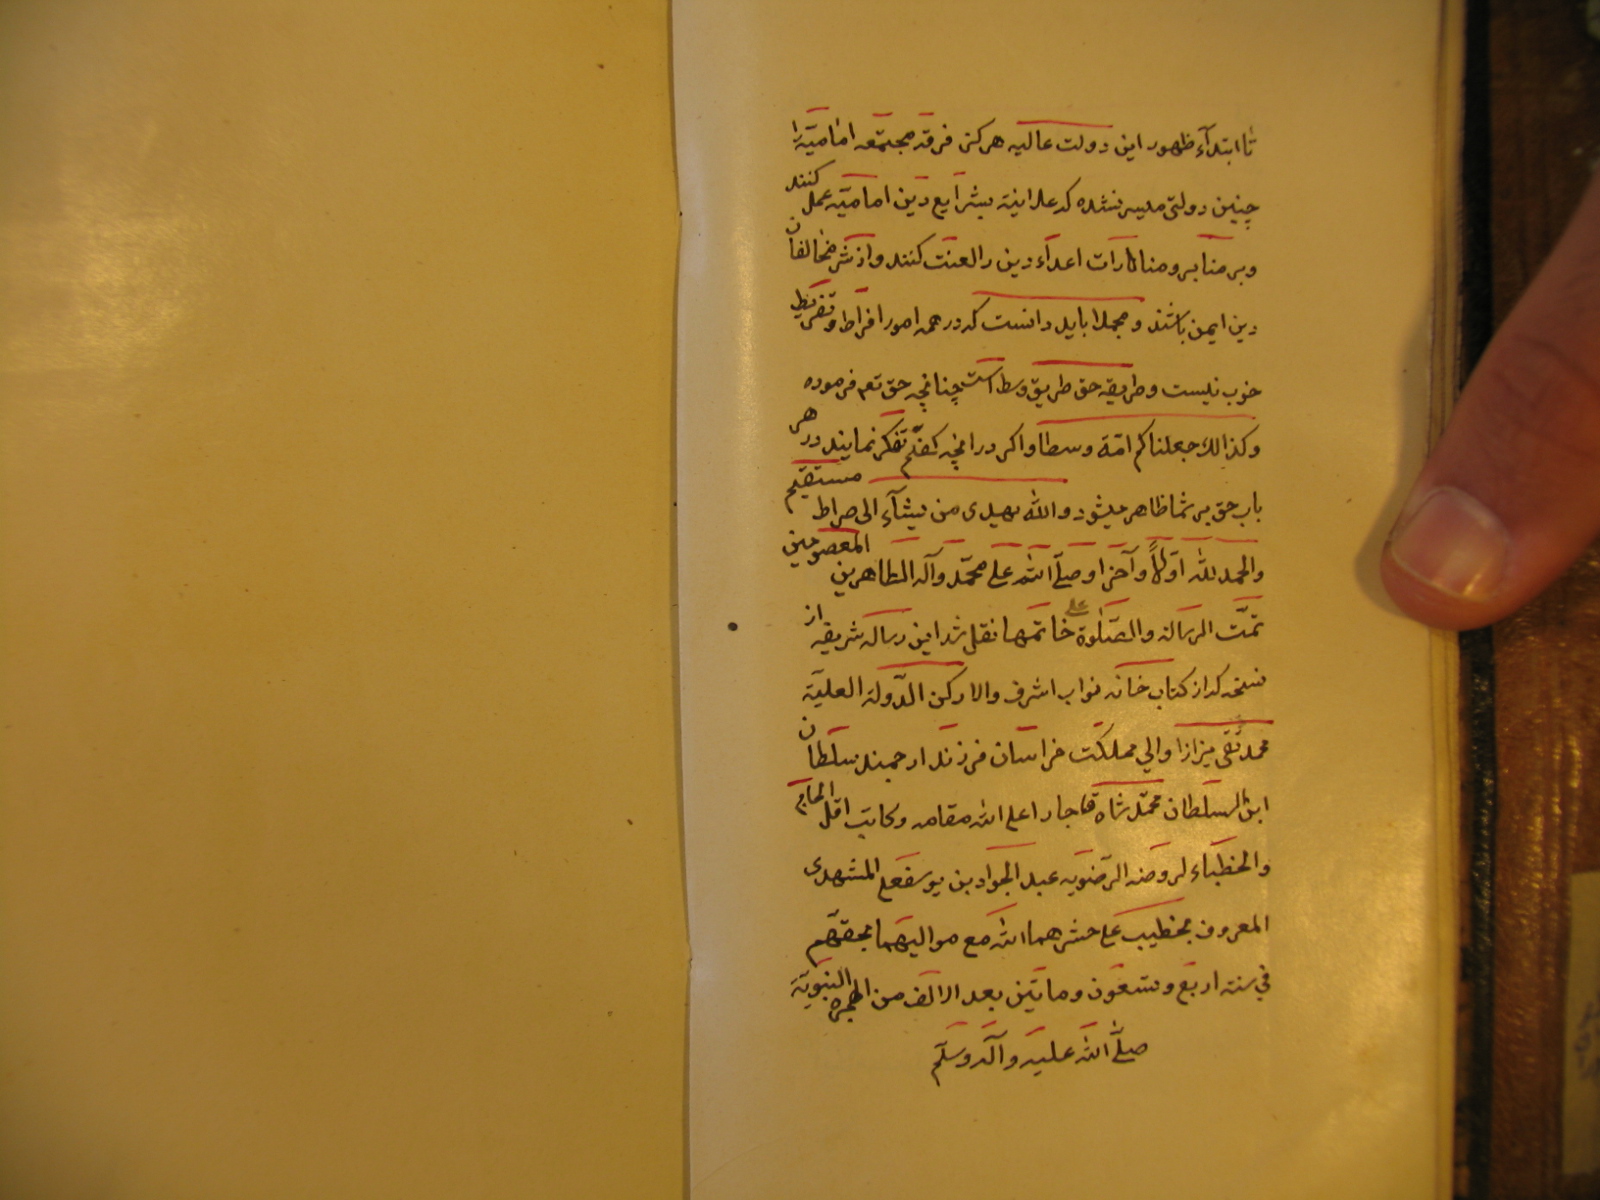 تا ابتدآء ظهور این دولت عالیه هرکز فرقه مجتمعه امامیّه را
چنین دولتی میسر نشده که علانیة بشرایع دین امامیّه عمل کنند
و بر منابر و مناارات اعداء دین را لعنت کنند و از شر مخالفان
دین ایمن باشند و مجملا باید دانست که در همه امور افراط و تفریط
خوب نیست و طریقه حق طریق وسط است چنانچه حق تعم فرموده
و کذالك جعلناکم امّة وسطا و اکر در انچه کفتم تفکر نمایند در هر
باب حق بر شما ظاهر میشود و الله یهدی من یشآء الی صراط مستقیم
والحمد لله اوّلاً و آخرا و صلّی الله علی محمّد و آله الطاهرین المعصومین
تمّت الرساله والصّلوة علی خاتمها نقل شد این رساله شریفه از
نسخه که از کتاب خانه نواب اشرف والا رکن الدّولة العلیّة
محمد تقی میرزا والی مملکت خراسان فرزند ارجمند سلطان
ابن السلطان محمّد شاه قاجار اعلی الله مقامه و کاتب اقل الحاج
والخطباء لروضه الرضویه عبد الجواد بن یوسفعلی المشهدی
المعروف بخطیب علی حشرهما الله مع موالیهما بحقهم
في سنه اربع و تسعون و مأتین بعد الالف من الهجره النبویّة
صلّی الله علیه و آله و سلّم